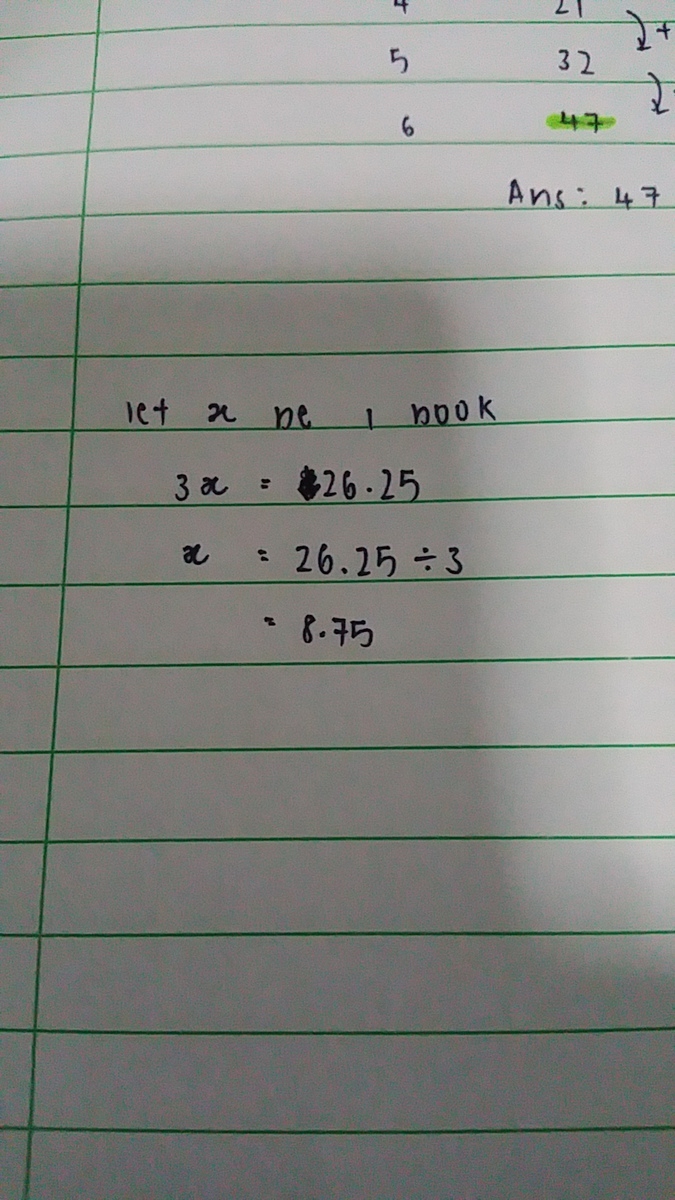 4 21
5 32
6 47
Ans: 47
let x be 1 book
3x = 26.25
x = 26.25 ÷ 3
= 8.75